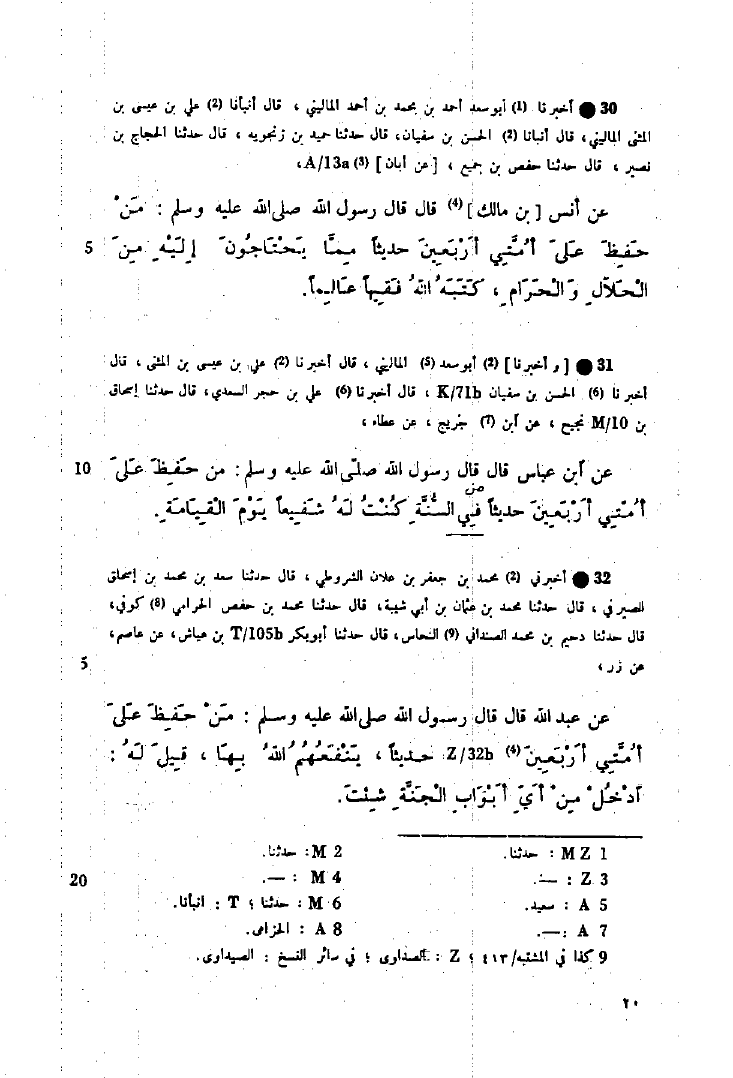 30 ● أخبرنا (1) أبو سعد أحمد بن محمد بن أحمد الماليني ، قال أنبأنا (2) علي بن عيسى بن
المثنى الماليني، قال أنبأنا (2) الحسن بن سفيان، قال حدثنا حميد بن زنجويه ، قال حدثنا الحجاج بن
نصير ، قال حدثنا حفص بن جميع ، [عن أبان] (3) A/13a،
عن أنس [بن مالك] (4) قال قال رسول الله صلى الله عليه وسلم : مَنْ
5 حَفِظَ عَلَىَ أُمَّتِي أَرْبَعِينَ حديثاً مِمَّا يَحْتَاجُونَ إِلَيْهِ مِنَ
الْحَلاَلِ وَالْحَرَامِ ، كَتَبَهُ اللهُ فَقِيهاً عَالِماً.
31 ● [و أخبرنا] (2) أبو سعد (5) الماليني ، قال أخبرنا (2) علي بن عيسى بن المثنى ، قال
أخبرنا (6) الحسن بن سفيان K/71b ، قال أخبرنا (6) علي بن حجر السعدي، قال حدثنا إسحاق
بن M/10 نجيح ، عن أبن (7) جريج ، عن عطاء ،
10 عن أبن عباس قال قال رسول الله صلّى الله عليه وسلم : من حَفِظَ عَلَىَ
من
أُمَّتِي أَرْبَعِينَ حديثاً فِي السُّنَّةِ كُنْتُ لَهُ شَفِيعاً يَوْمَ الْقِيَامَةِ.
32 ● أخبرني (2) محمد بن جعفر بن علان الشروطي ، قال حدثنا سعد بن محمد بن إسحاق
الصيرفي ، قال حدثنا محمد بن عثمان بن أبي شيبة، قال حدثنا محمد بن حفص الحرامي (8) كوفي،
قال حدثنا دحيم بن محمد الصنداني (9) النحاس، قال حدثنا أبوبكر T/105b بن عياش، عن عاصم،
5 عن زر ،
عن عبد الله قال قال رسول الله صلى الله عليه وسلم : مَنْ حَفِظَ عَلَىَ
أُمَّتِي أَرْبَعِينَ (4) Z/32b حديثاً ، يَنْفَعُهُمُ اللهُ بِهَا ، قِيلَ لَهُ :
أدْخُلْ مِنْ أَيِّ أَبْوَابِ الْجَنَّةِ شِئْتَ.
1 M Z : حدثنا. 2 M: حدثنا.
3 Z : —. 4 M : —.
20 5 A : سعيد. 6 M : حدثنا ؛ T : انبأنا.
7 A :—. 8 A : الحزامى.
9 كذا في المشتبه/٤١٣ ؛ Z : الصداوى ؛ في سائر النسخ : الصيداوى.
٢٠